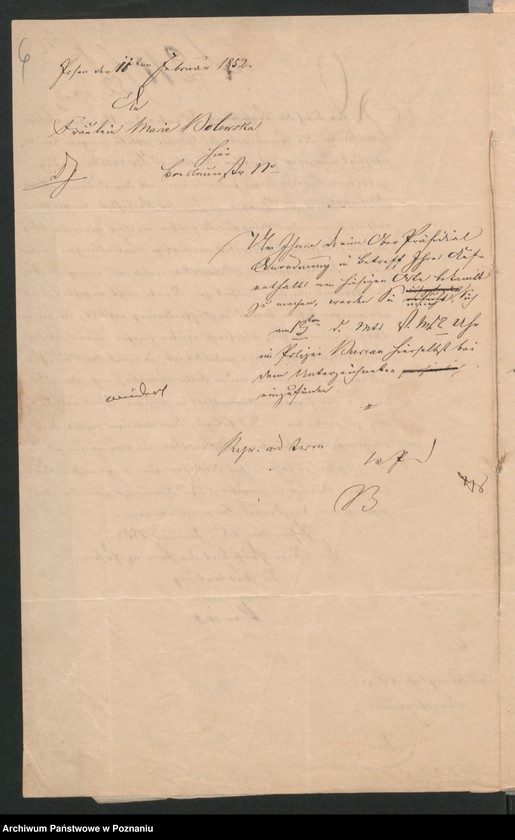 6
Posen den 11ten Februar 1852.
An
Fräulein Marie Bolewska
hier
Breslauerstr. No
Um Ihnen die eine Ober Präsidial
Anordnung in Betreff Ihres Aufe
enthalts am hiesigen Orte bekannt
zu machen, werden Sie ersucht, Sich
am 13ten d. Mts. V. M. Uhr
im Polizei Bureau hierselbst bei
dem Unterzeichneten
einzufinden.
mündirt
Repr. ad term
B
Archiwum Państwowe w Poznaniu